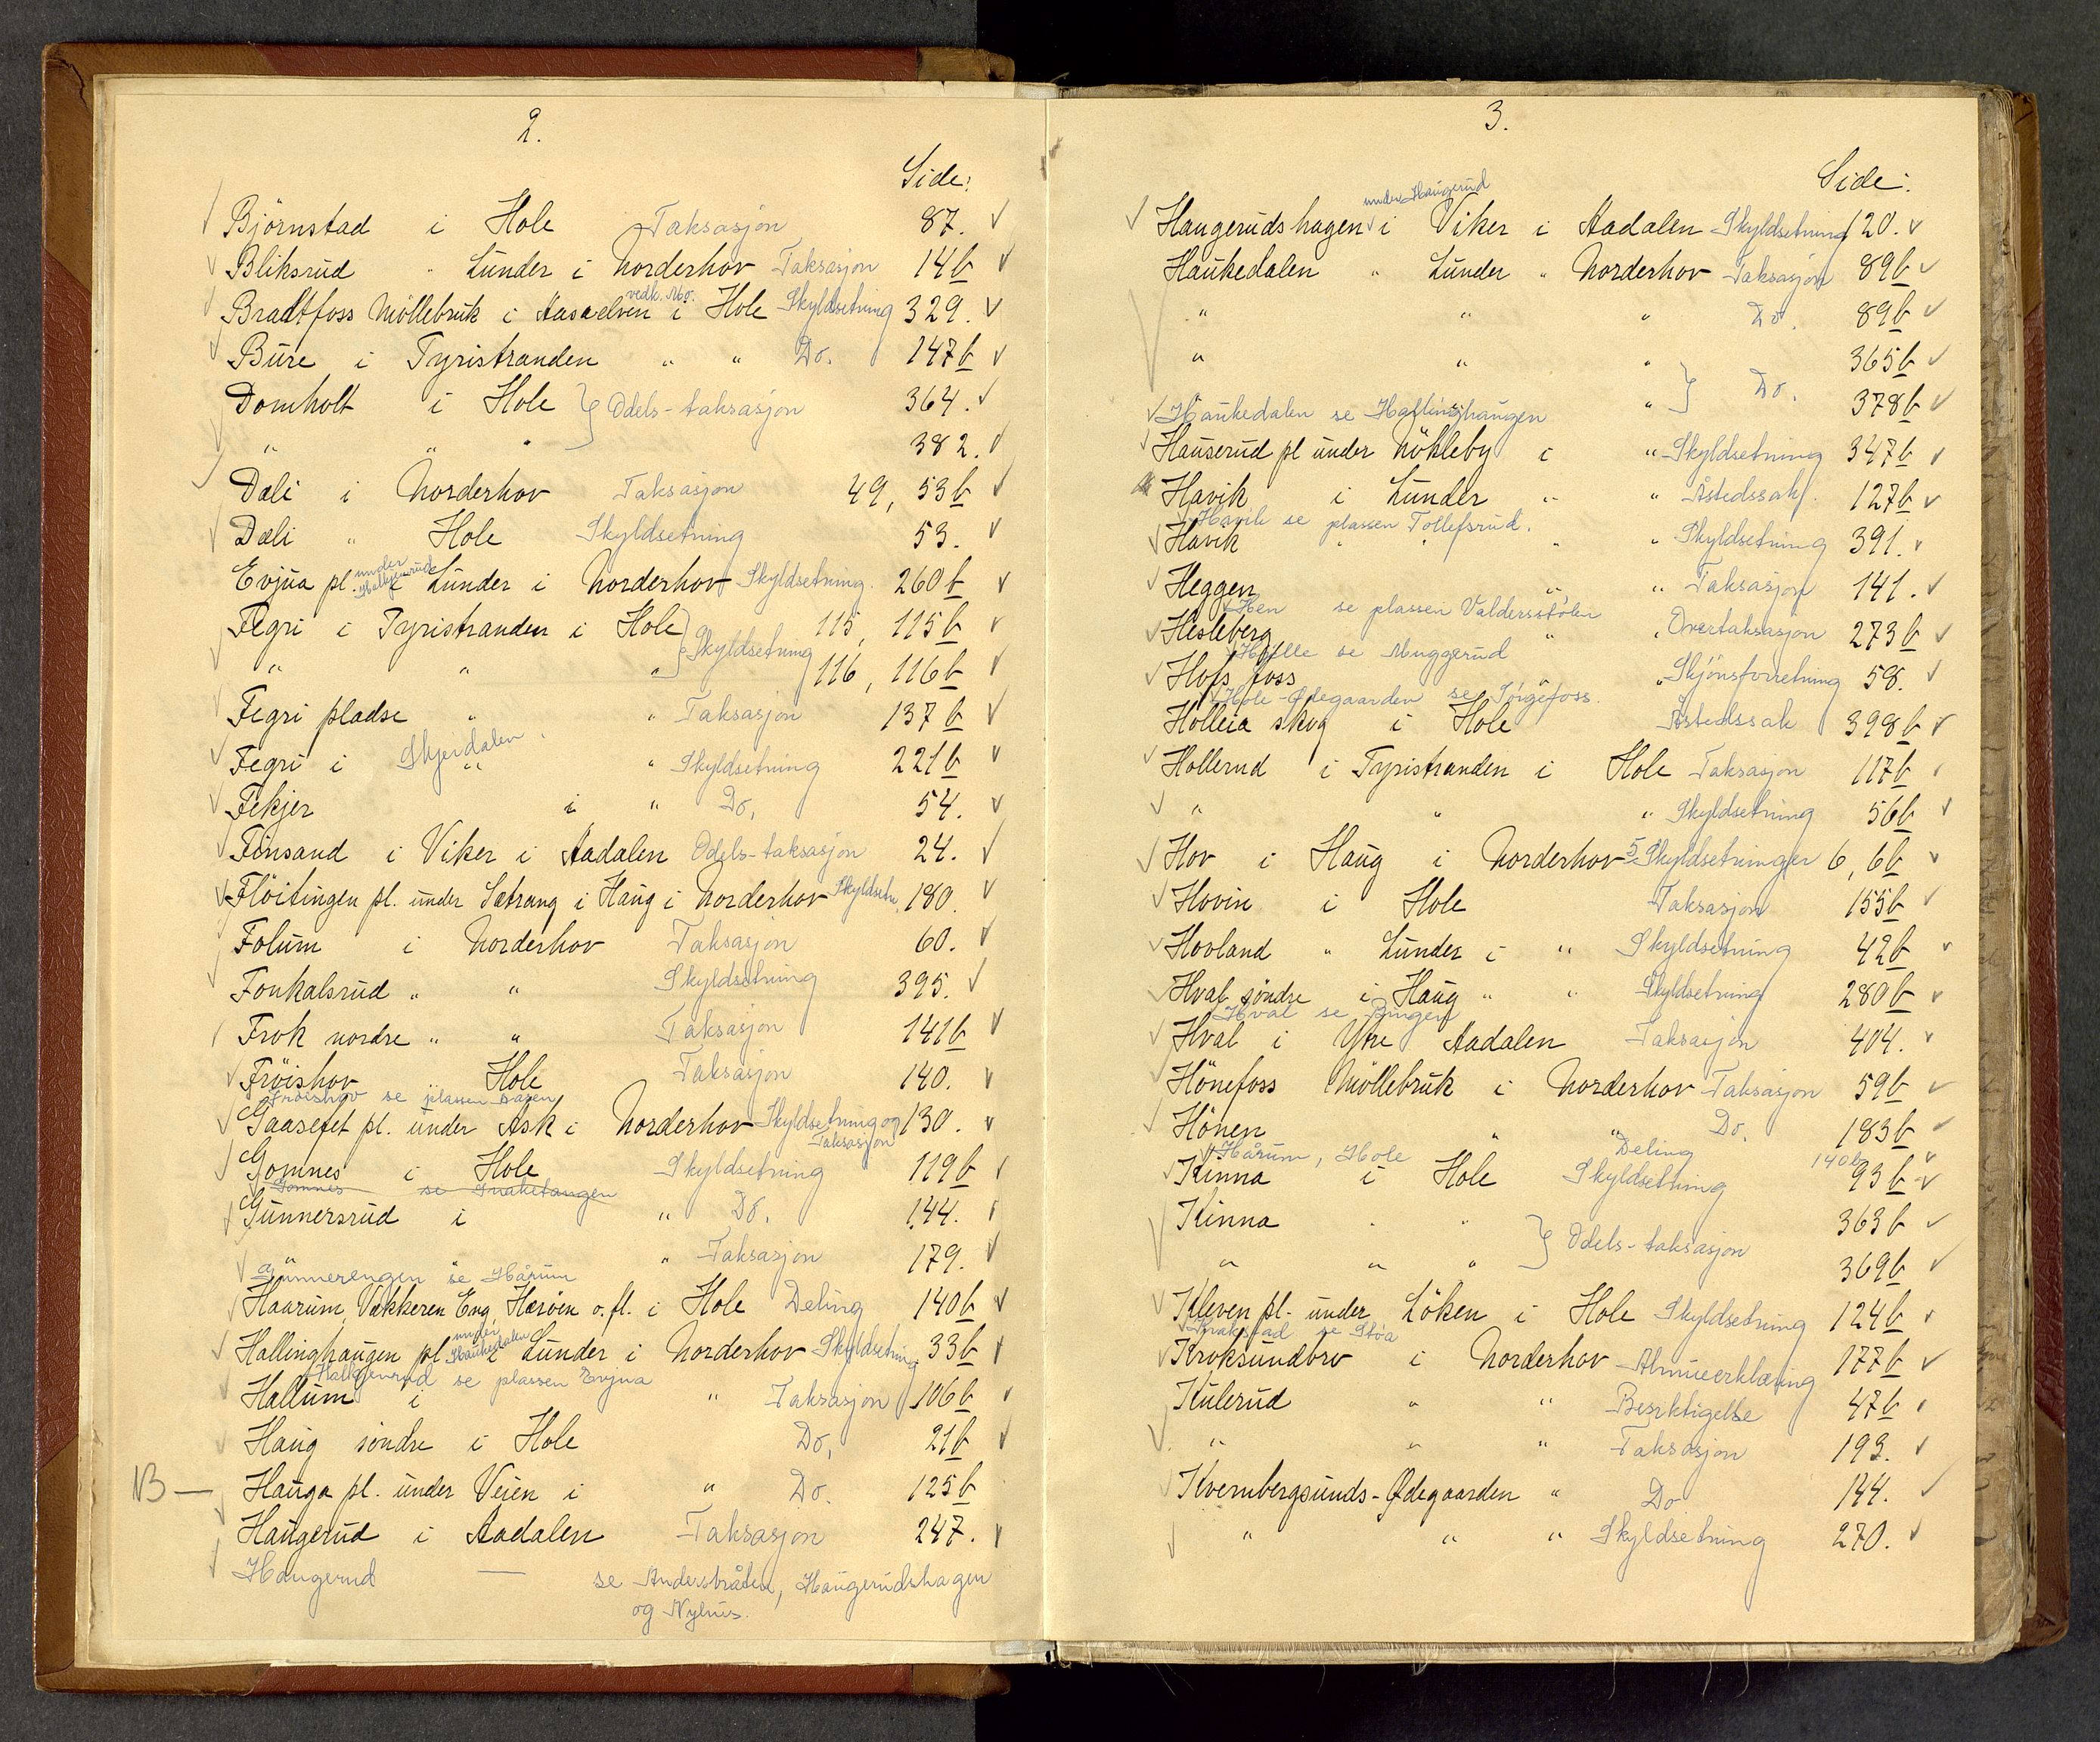 2.
Side:
Björnstad i Hole Taksasjon 87.
Bliksrud " Lunder i Norderhov Taksasjon 14b
Bradtfoss Möllebruk i Aasaelven vedk. Mo. i Hole Skyldsetning 329.
Bure i Tyristranden " " Do. 147b
Domholt i Hole } Odels-taksasjon 364.
" " " 382.
Dæli i Norderhov Taksasjon 49, 53b
Dæli " Hole Skyldsetning 53.
Evjua pl. under i Lunder i Norderhov Skyldsetning. 260b
Fegri i Tyristranden i Hole } Skyldsetning 115, 115b
" " " 116, 116b
Fegri pladse " " Taksasjon 137b
Fegri i Skjerdalen " " Skyldsetning 221b
Fekjer i " Do. 54.
Finsand i Viker i Aadalen Odels-taksasjon 24.
Flöitingen pl. under Sætrang i Haug i Norderhov Skyldsetn. 180.
Folum i Norderhov Taksasjon 60.
Fonkalsrud " " Skyldsetning 395.
Frok nordre " " Taksasjon 141b
Fröishov " Hole Taksasjon 140.
Fröishov se plassen
Gaasefet pl. under Ask i Norderhov Skyldsetning og Taksasjon 130.
Gomnes i Hole Skyldsetning 119b
Gomnes se Snaketangen
Gunnersrud i " Do. 144.
" " Taksasjon 179.
Gunnerengen se Hårum
Haarum, Vækkeren Eng, Hærøen o. fl. i Hole Deling 140b
Hallinghaugen pl. under Haukedalen i Lunder i Norderhov Skyldsetning 33b
Halkjenrud se plassen Evjua
Hallum i " Taksasjon 106b
Haug söndre i Hole Do. 21b
NB — Hauga pl. under Veien i " Do. 125b
Haugerud i Aadalen Taksasjon 247.
Haugerud — se Andersbråten, Haugerudshagen
og Nyhus.
3.
Side:
Haugerudshagen under Haugerud i Viker i Aadalen Skyldsetning 120.
Haukedalen " Lunder " Norderhov Taksasjon 89b
" " " Do. 89b
" " " } Do. 365b
" 378b
Haukedalen se Hallinghaugen
Hauserud pl under Nökleby i " Skyldsetning 347b
Havik i Lunder " " Åstedssak. 127b
Havik se plassen Tollefsrud.
Havik " " " " Skyldsetning 391.
Heggen " " Taksasjon 141.
Hen se plassen Valdersstølen
Hesleberg " " Overtaksasjon 273b
se Muggerud
Hofs foss " Skjönsforretning 58.
Hole-Ødegaarden se Jörgefoss.
Holleia skog i Hole Åstedssak 398b
Hollerud i Tyristranden i Hole Taksasjon 117b
" " " Skyldsetning 56b
Hov i Haug i Norderhov 5 Skyldsetninger 6, 6b
Hovin i Hole Taksasjon 155b
Hovland " Lunder i " Skyldsetning 42b
Hval söndre i Haug " " Skyldsetning 280b
Hval se Bingen
Hval i Ytre Aadalen Taksasjon 404.
Hönefoss Möllebruk i Norderhov Taksasjon 59b
Hönen " " Do. 183b
Hårum, Hole Deling 140b
Kinna i Hole Skyldsetning 93b
Kinna " " } Odels-taksasjon 363b
" " " 369b
Kleven pl. under Löken i Hole Skyldsetning 124b
Krakstad se Støa
Kroksundbro i Norderhov Almueerklæring 177b
Kulerud " " Besiktigelse 47b
" " " Taksasjon 193.
Kvernbergsunds-Ødegaarden " Do 144.
" " " Skyldsetning 270.